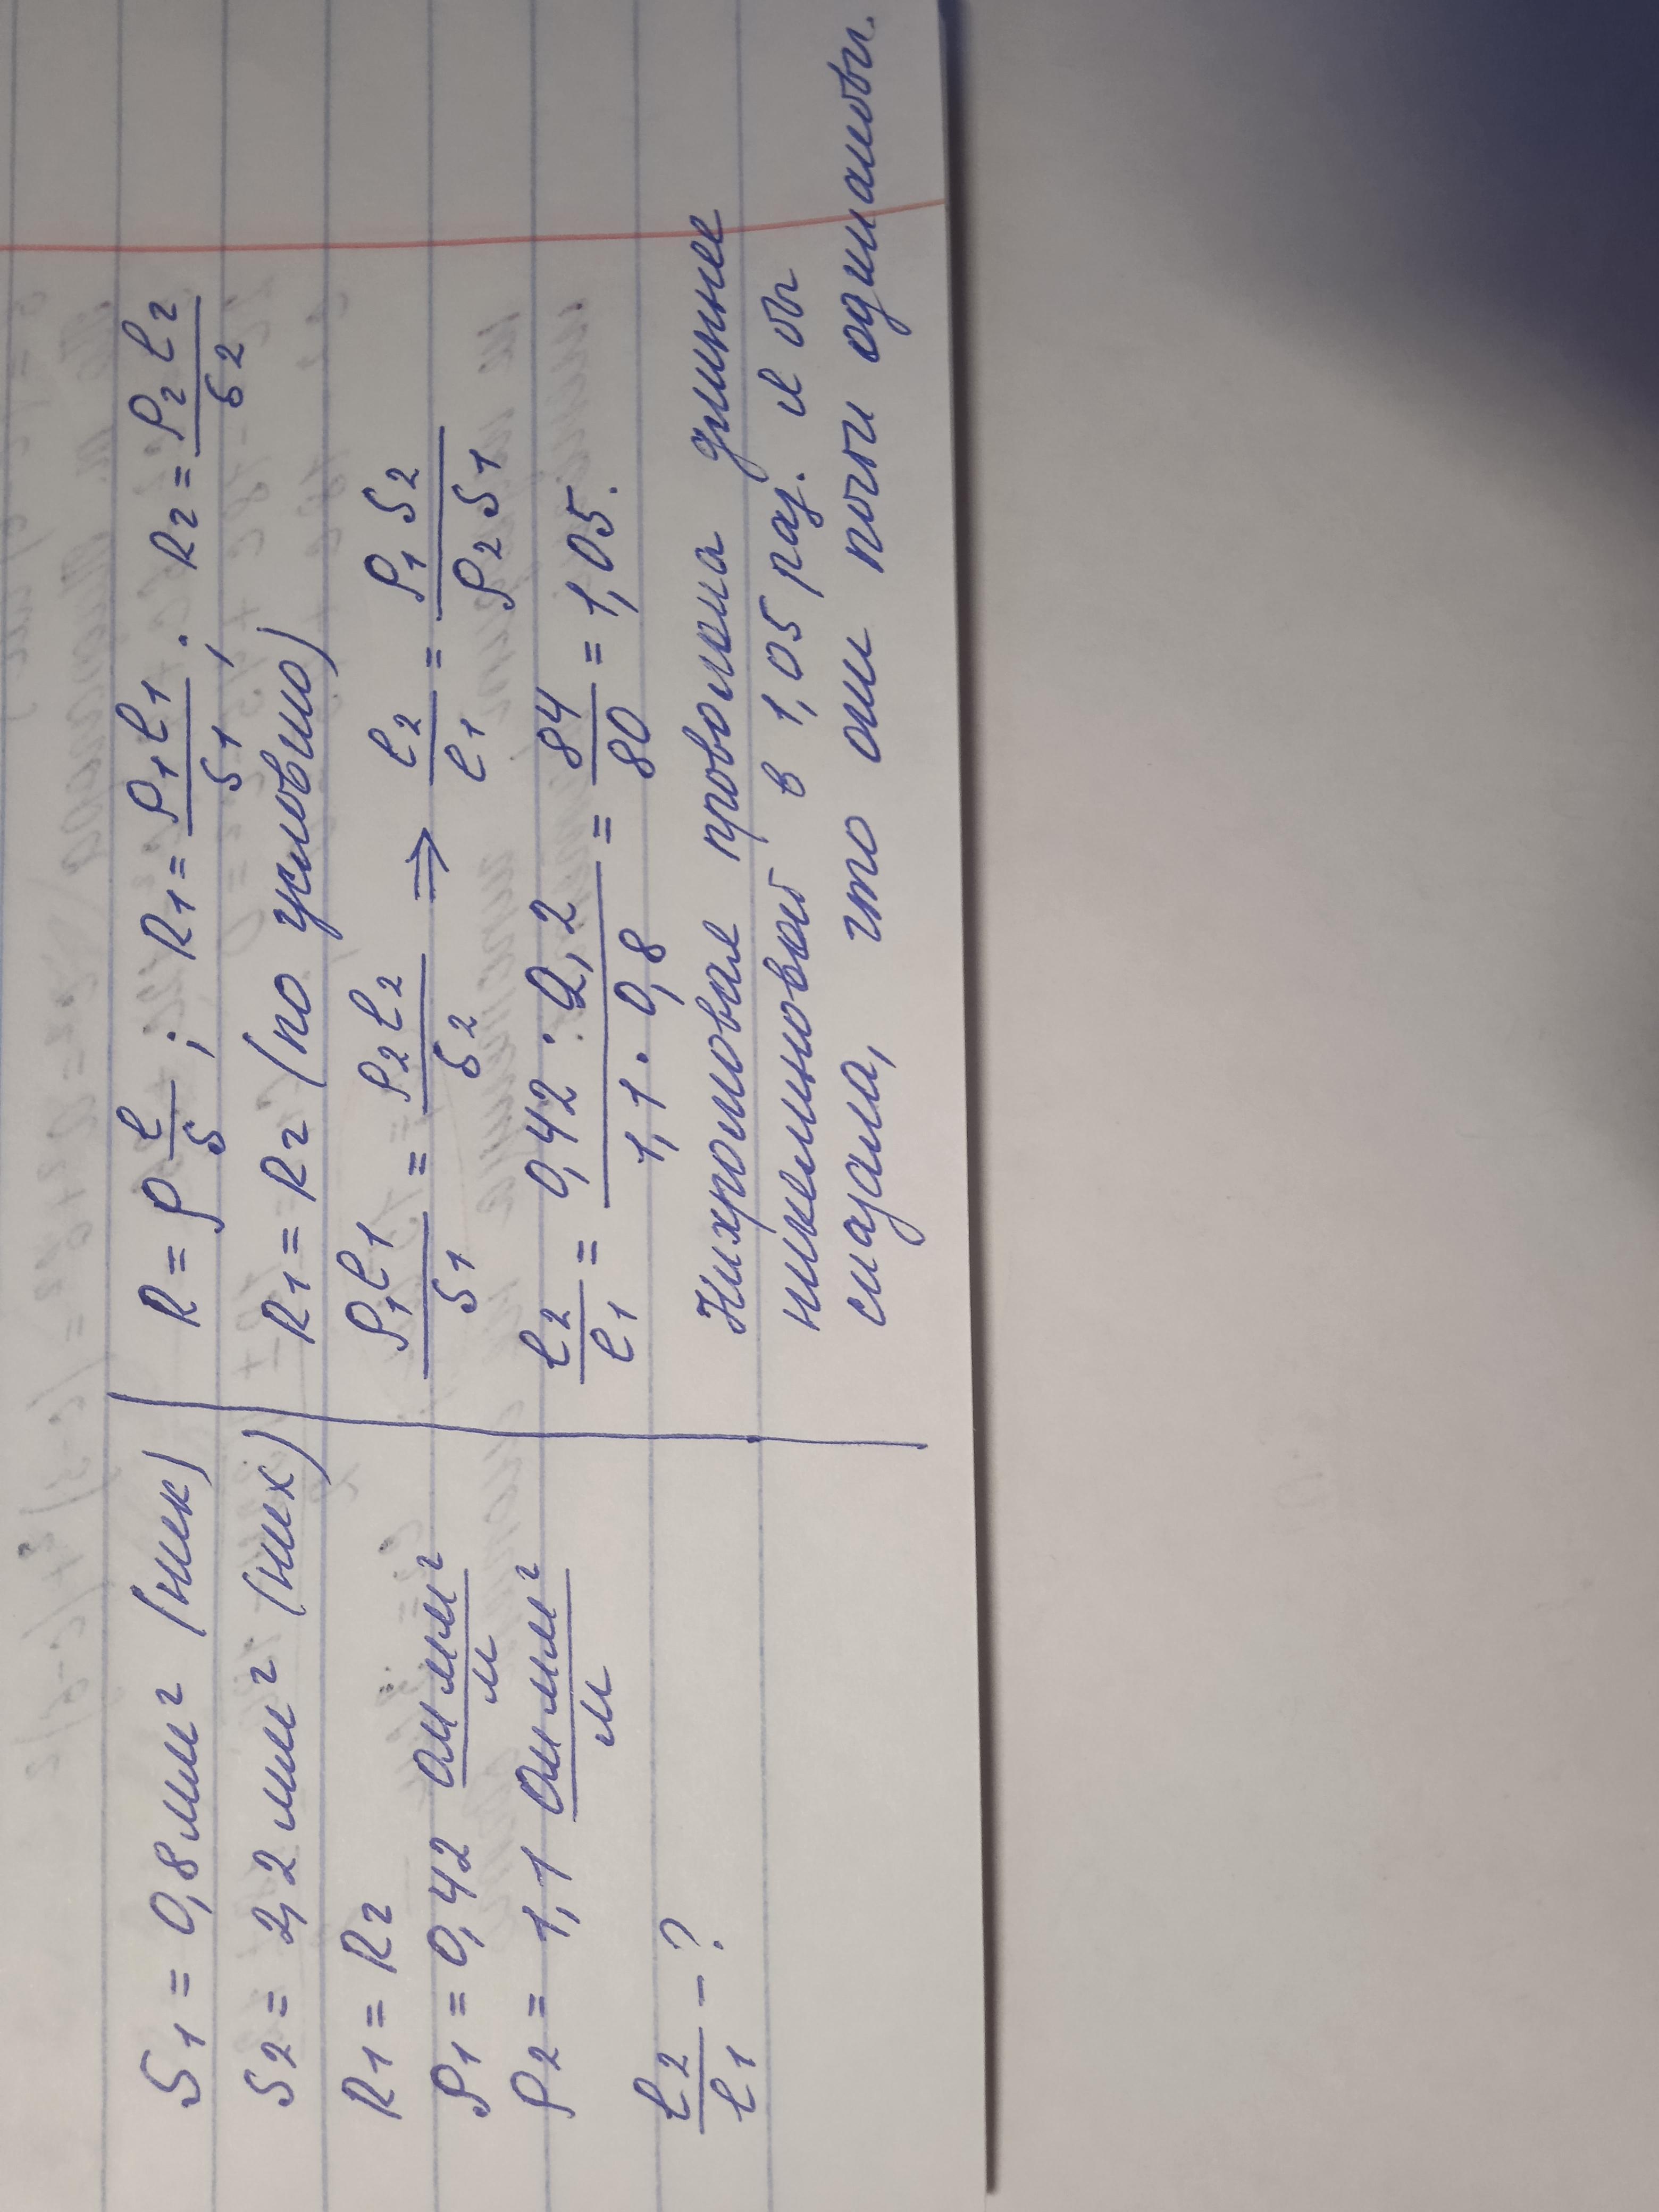 S1 = 0,8 мм² (ник)
S2 = 2,2 мм² (них)
R1 = R2
ρ1 = 0,42 Ом мм²/м
ρ2 = 1,1 Ом мм²/м
l2/l1 - ?
R = ρ l/S ; R1 = ρ1 l1/S1 ; R2 = ρ2 l2/S2
R1 = R2 (по условию)
ρ1 l1/S1 = ρ2 l2/S2 ⇒ l2/l1 = ρ1 S2/ρ2 S1
l2/l1 = 0,42 · 2,2/1,1 · 0,8 = 84/80 = 1,05.
Нихромовая проволока длиннее
никелиновой в 1,05 раз. Я бы
сказала, что они почти одинаковы.